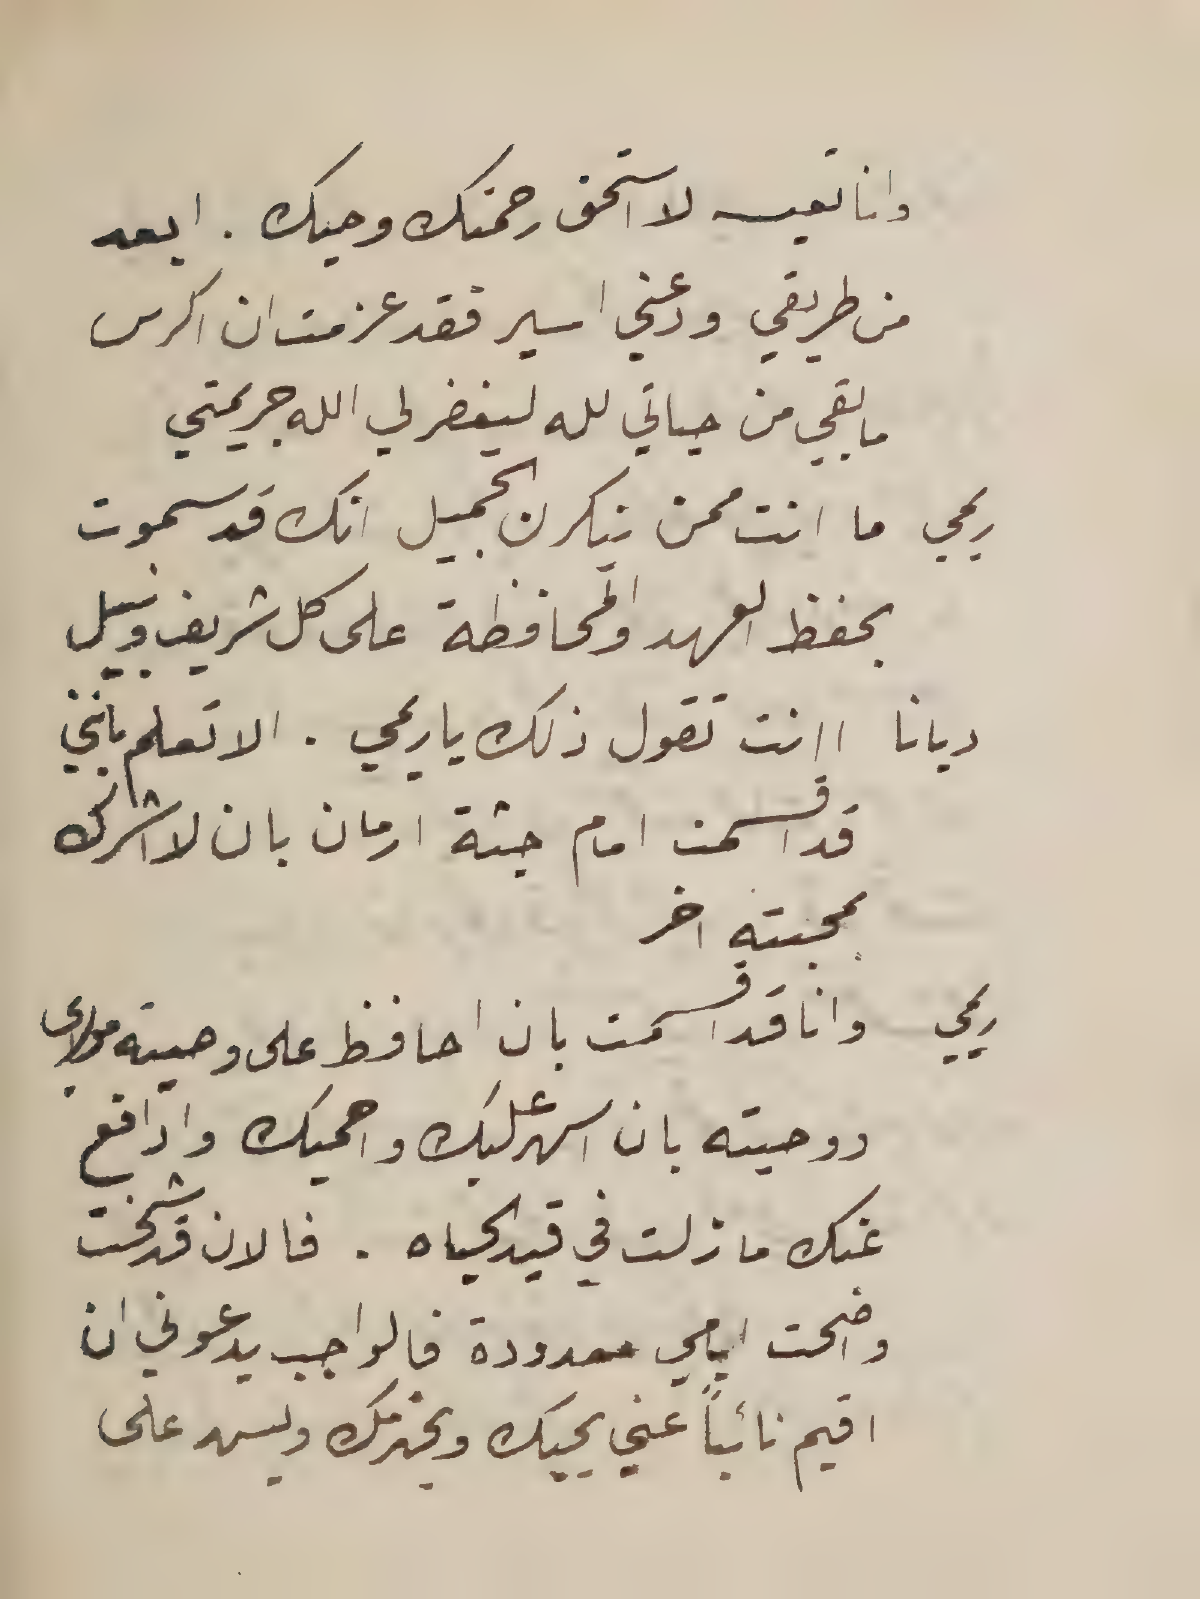 وانا تعيسه لا استحق رحمتك وحبك . ابعد
من طريقي ودعني اسير فقد عزمت ان اكرس
ما بقي من حياتي لله ليغفر لي الله جريمتي
ريمي ما انت ممن ينكرن الجميل انك قد سموت
بحفظ العهد والمحافظة على كل شريف ونبيل
ديانا اانت تقول ذلك يا ريمي . الا تعلم بانني
قد اقسمت امام جثة ارمان بان لا اشرك
بمحبته اخر
ريمي وانا قد اقسمت بان احافظ على وصيته مولاي
ووصيته بان اسهر عليك واحميك وادافع
عنك ما زلت في قيد الحياه . فالان قد شخت
واضحت ايامي معدودة فالواجب يدعوني ان
اقيم نائباً عني يحبك ويخدمك ويسهر على